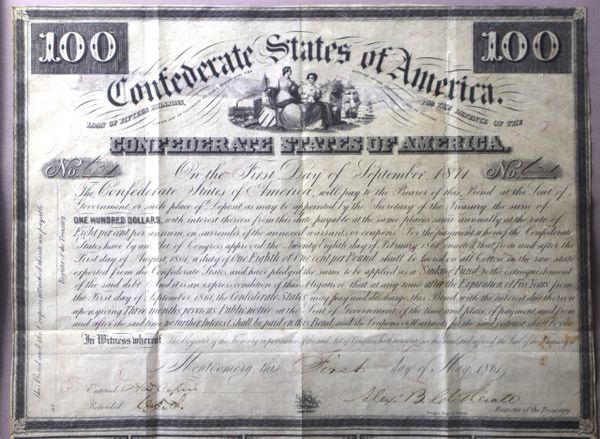 100 100
Confederate States of America.
LOAN OF FIFTEEN MILLIONS, FOR THE DEFENCE OF THE
CONFEDERATE STATES OF AMERICA.
No. 671 No. 671
On the First Day of September 1871
The Confederate States of America, will pay to the Bearer of this Bond at the Seat of
Government or such place of Deposit as may be appointed by the Secretary of the Treasury, the sum of
ONE HUNDRED DOLLARS, with interest thereon from this date, payable at the same places semi annually at the rate of
Eight per cent per annum, on surrender of the annexed warrants or coupons. For the payment whereof the Confederate
States have by an Act of Congress approved the Twenty Eighth day of February 1861, enacted, That from and after the
First day of August 1861, a duty of One Eighth of One cent per Pound shall be levied on all Cotton in the raw state
exported from the Confederate States, and have pledged the same to be applied as a Sinking Fund to the extinguishment
of the said debt. And it is an express condition of this obligation that at any time after the Expiration of Five Years from
the First day of September 1861, the Confederate States may pay and discharge this Bond with the interest due thereon
upon giving Three months previous Public notice at the Seat of Government of the time and place of payment, and from
and after the said time no further Interest shall be paid on this Bond, and the Coupons or Warrants for the said interest shall be void
In Witness whereof, The Register of the Treasury in pursuance of the said Act of Congress hath hereunto set his hand and affixed the Seal of the Treasury at
Montgomery this First day of May 1861
Entered
Recorded
Alex. B. Clitherall
Register of the Treasury.
Register of the Treasury.